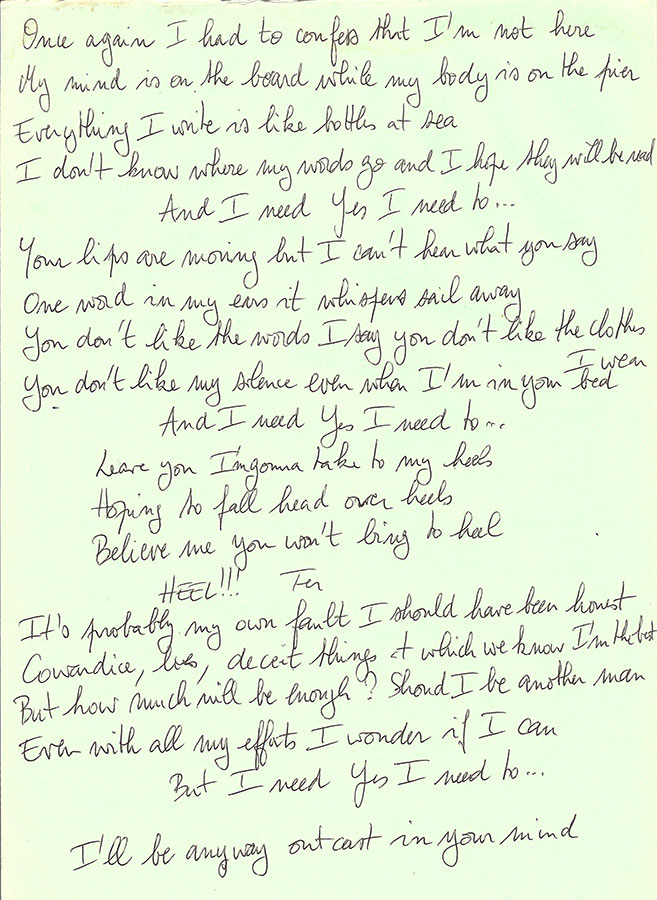 Once again I had to confess that I'm not here
My mind is on the board while my body is on the pier
Everything I write is like bottles at sea
I don't know where my words go and I hope they will be read
And I need Yes I need to...
Your lips are moving but I can't hear what you say
One word in my ears it whispers sail away
You don't like the words I say you don't like the clothes
I wear
You don't like my silence even when I'm in your bed
And I need Yes I need to...
Leave you I'm gonna take to my heels
Hoping to fall head over heels
Believe me you won't bring to heel
HEEL!!!
It's probably my own fault I should have been honest
Cowardice, lies, deceit things at which we know I'm the best
But how much will be enough? Shoud I be another man
Even with all my efforts I wonder if I can
But I need Yes I need to...
I'll be anyway outcast in your mind